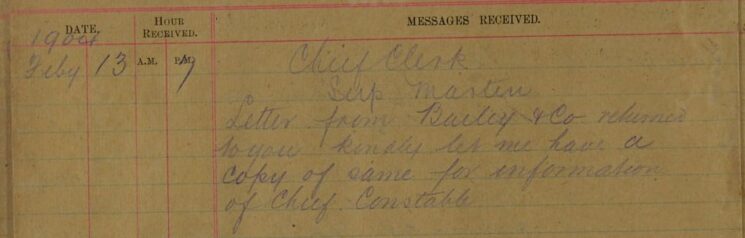 DATE. HOUR RECEIVED. MESSAGES RECEIVED.
1904
Feby 13 A.M. P.M. 7 Chief Clerk
Sup Marten
Letter from Bailey & Co returned
to you kindly let me have a
copy of same for information
of Chief Constable